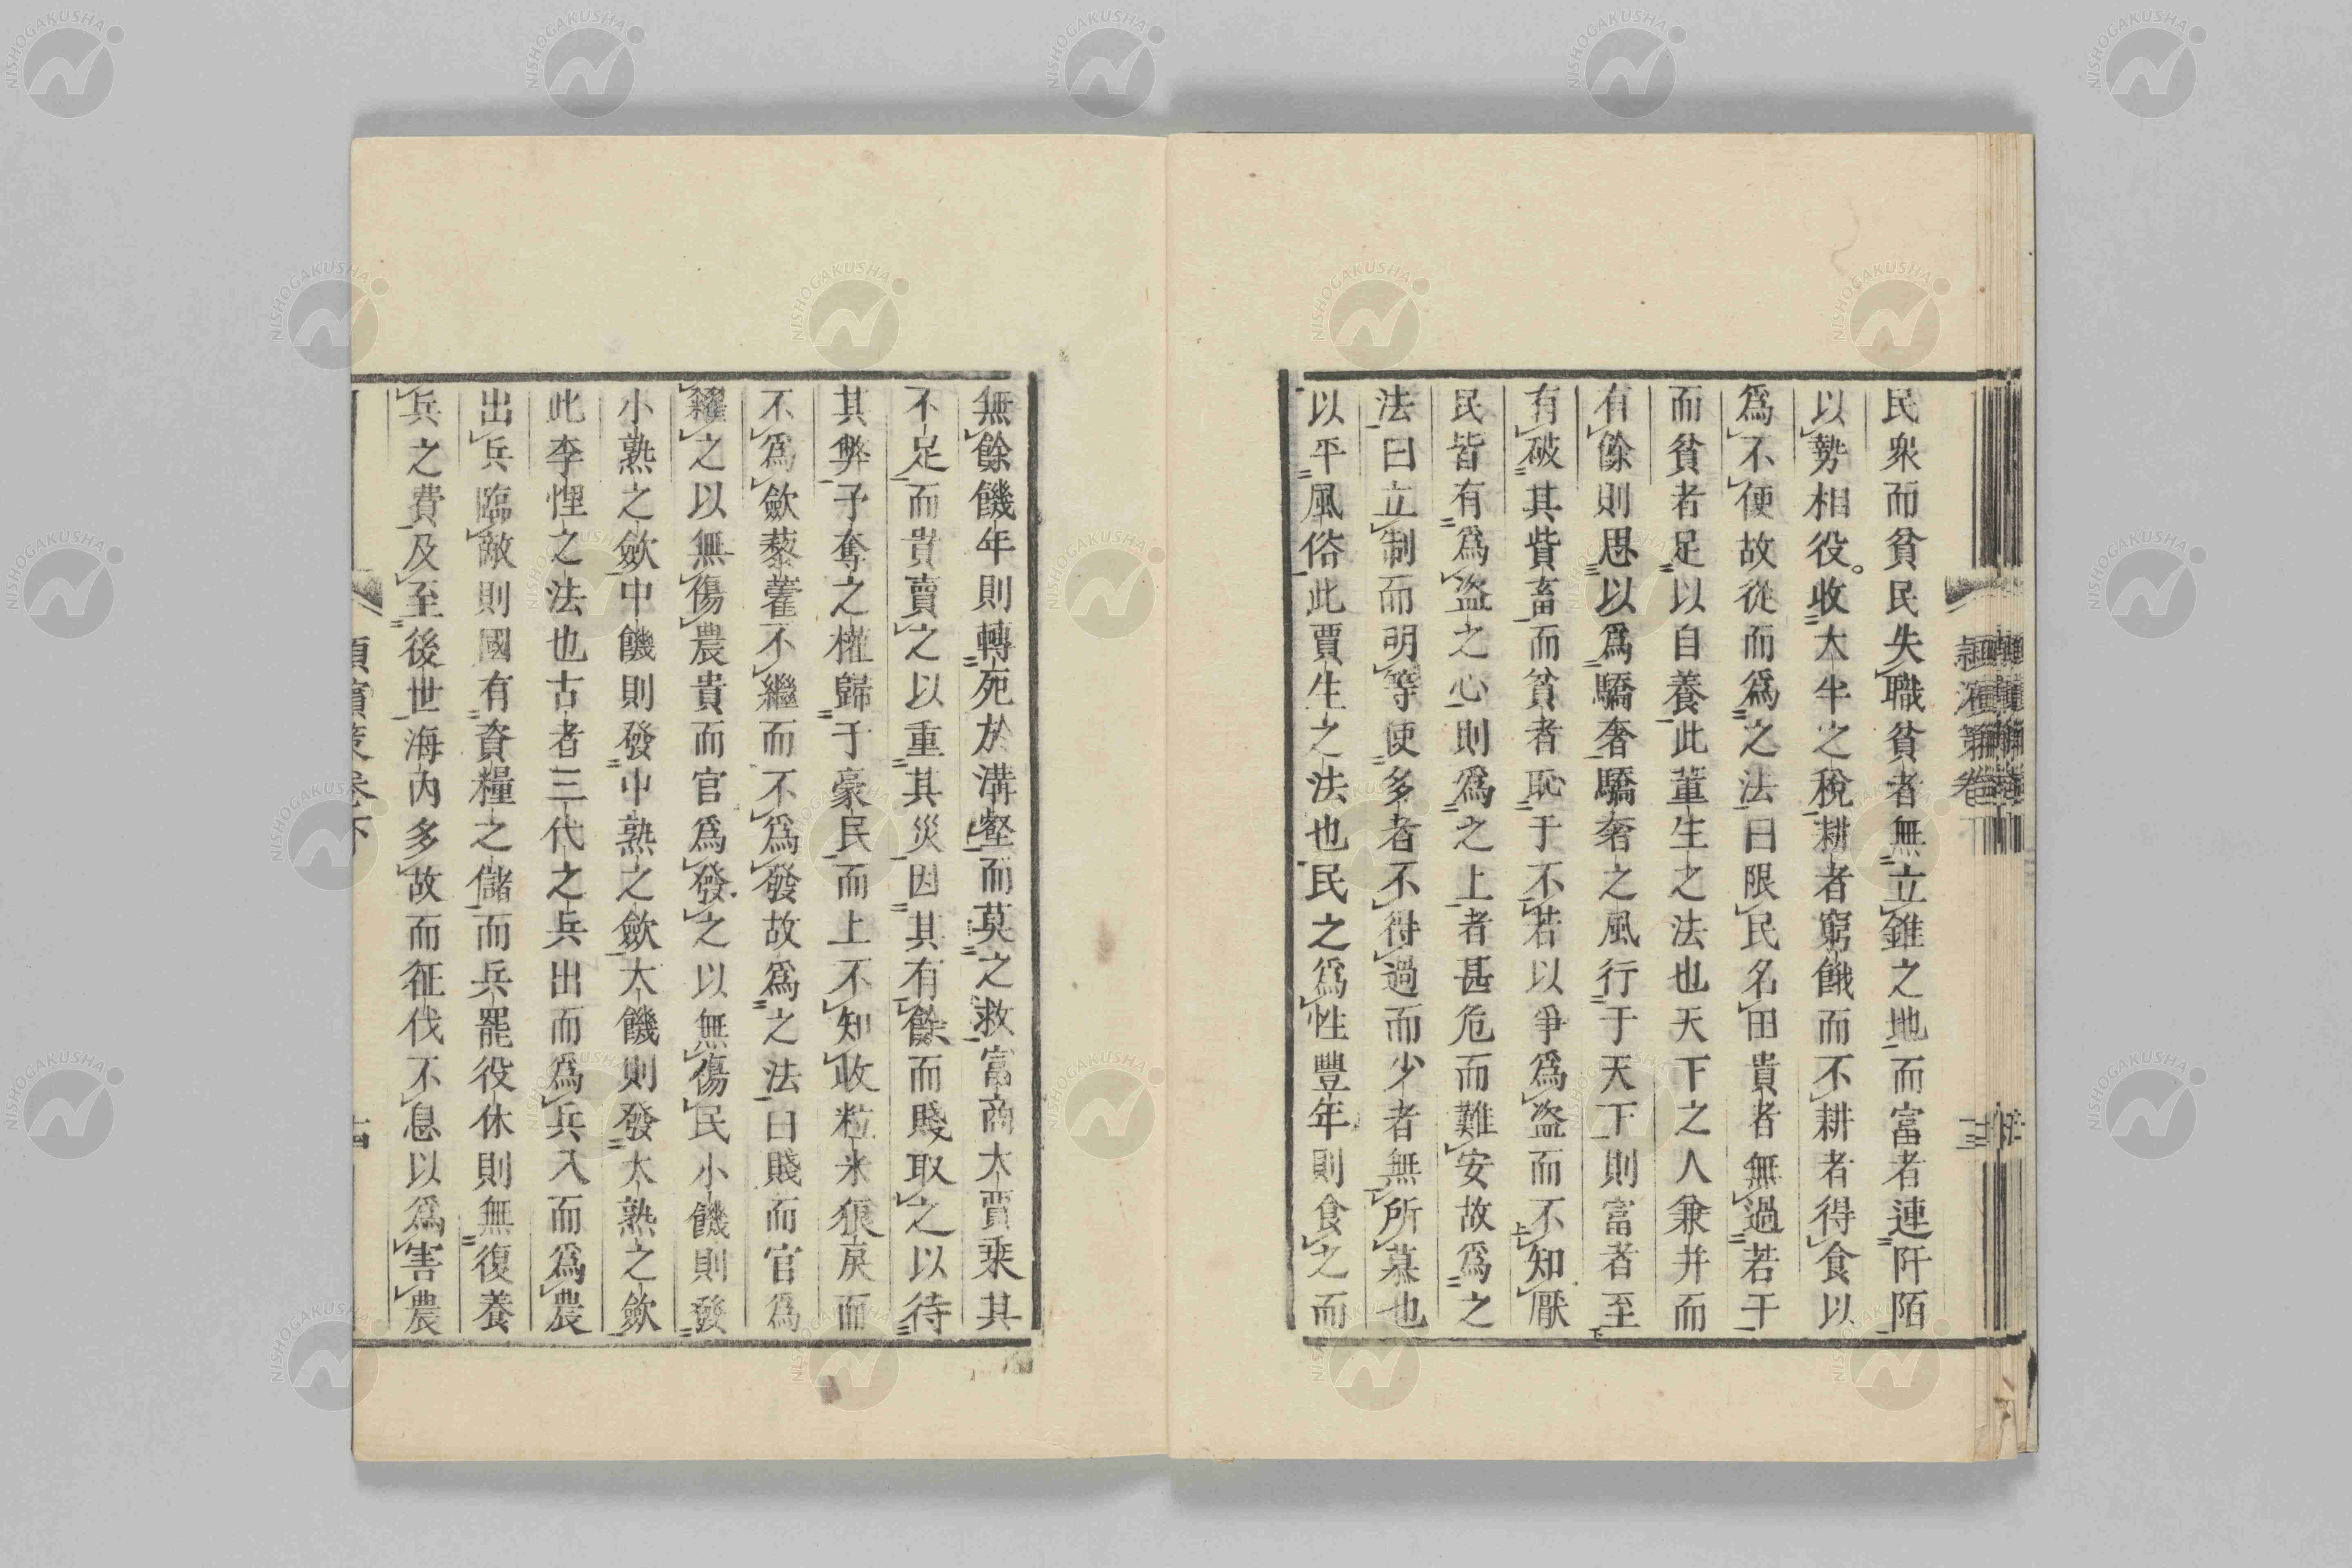 民衆而貧民失職貧者無立錐之地而富者連阡陌
以勢相役。收大半之稅耕者窮餓而不耕者得食以
爲不便故從而爲之法曰限民名田貴者無過若干
而貧者足以自養此董生之法也天下之人兼并而
有餘則思以爲驕奢驕奢之風行于天下則富者至
有破其貲畜而貧者恥于不若以爭爲盜而不知厭
民皆有爲盜之心則爲之上者甚危而難安故爲之
法曰立制而明等使多者不得過而少者無所慕也
以平風俗此賈生之法也民之爲性豐年則食之而
無餘饑年則轉死於溝壑而莫之救富商大賈乘其
不足而貴賣之以重其災因其有餘而賤取之以待
其弊予奪之權歸于豪民而上不知收粒米狼戾而
不爲歛藜藿不繼而不爲發故爲之法曰賤而官爲
糴之以無傷農貴而官爲發之以無傷民小饑則發
小熟之歛中饑則發中熟之歛大饑則發大熟之歛
此李悝之法也古者三代之兵出而爲兵入而爲農
出兵臨敵則國有資糧之儲而兵罷役休則無復養
兵之費及至後世海內多故而征伐不息以爲害農
潁濱策卷下
十四
NISHOGAKUSHA